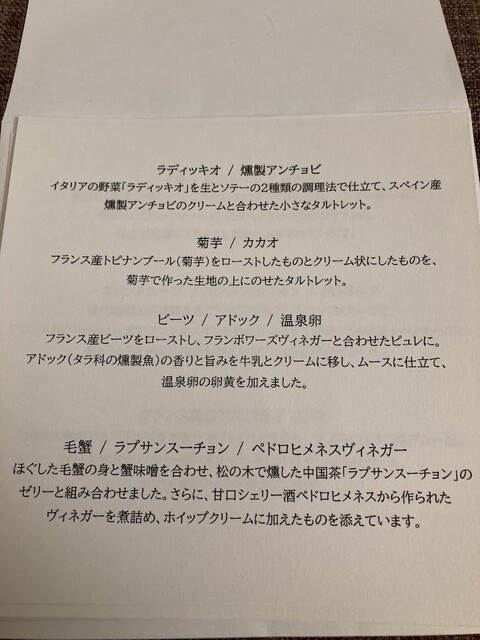 ラディッキオ / 燻製アンチョビ
イタリアの野菜「ラディッキオ」を生とソテーの2種類の調理法で仕立て、スペイン産
燻製アンチョビのクリームと合わせた小さなタルトレット。
菊芋 / カカオ
フランス産トピナンブール(菊芋)をローストしたものとクリーム状にしたものを、
菊芋で作った生地の上にのせたタルトレット。
ビーツ / アドック / 温泉卵
フランス産ビーツをローストし、フランボワーズヴィネガーと合わせたピュレに。
アドック(タラ科の燻製魚)の香りと旨みを牛乳とクリームに移し、ムースに仕立て、
温泉卵の卵黄を加えました。
毛蟹 / ラプサンスーチョン / ペドロヒメネスヴィネガー
ほぐした毛蟹の身と蟹味噌を合わせ、松の木で燻した中国茶「ラプサンスーチョン」の
ゼリーと組み合わせました。さらに、甘口シェリー酒ペドロヒメネスから作られた
ヴィネガーを煮詰め、ホイップクリームに加えたものを添えています。